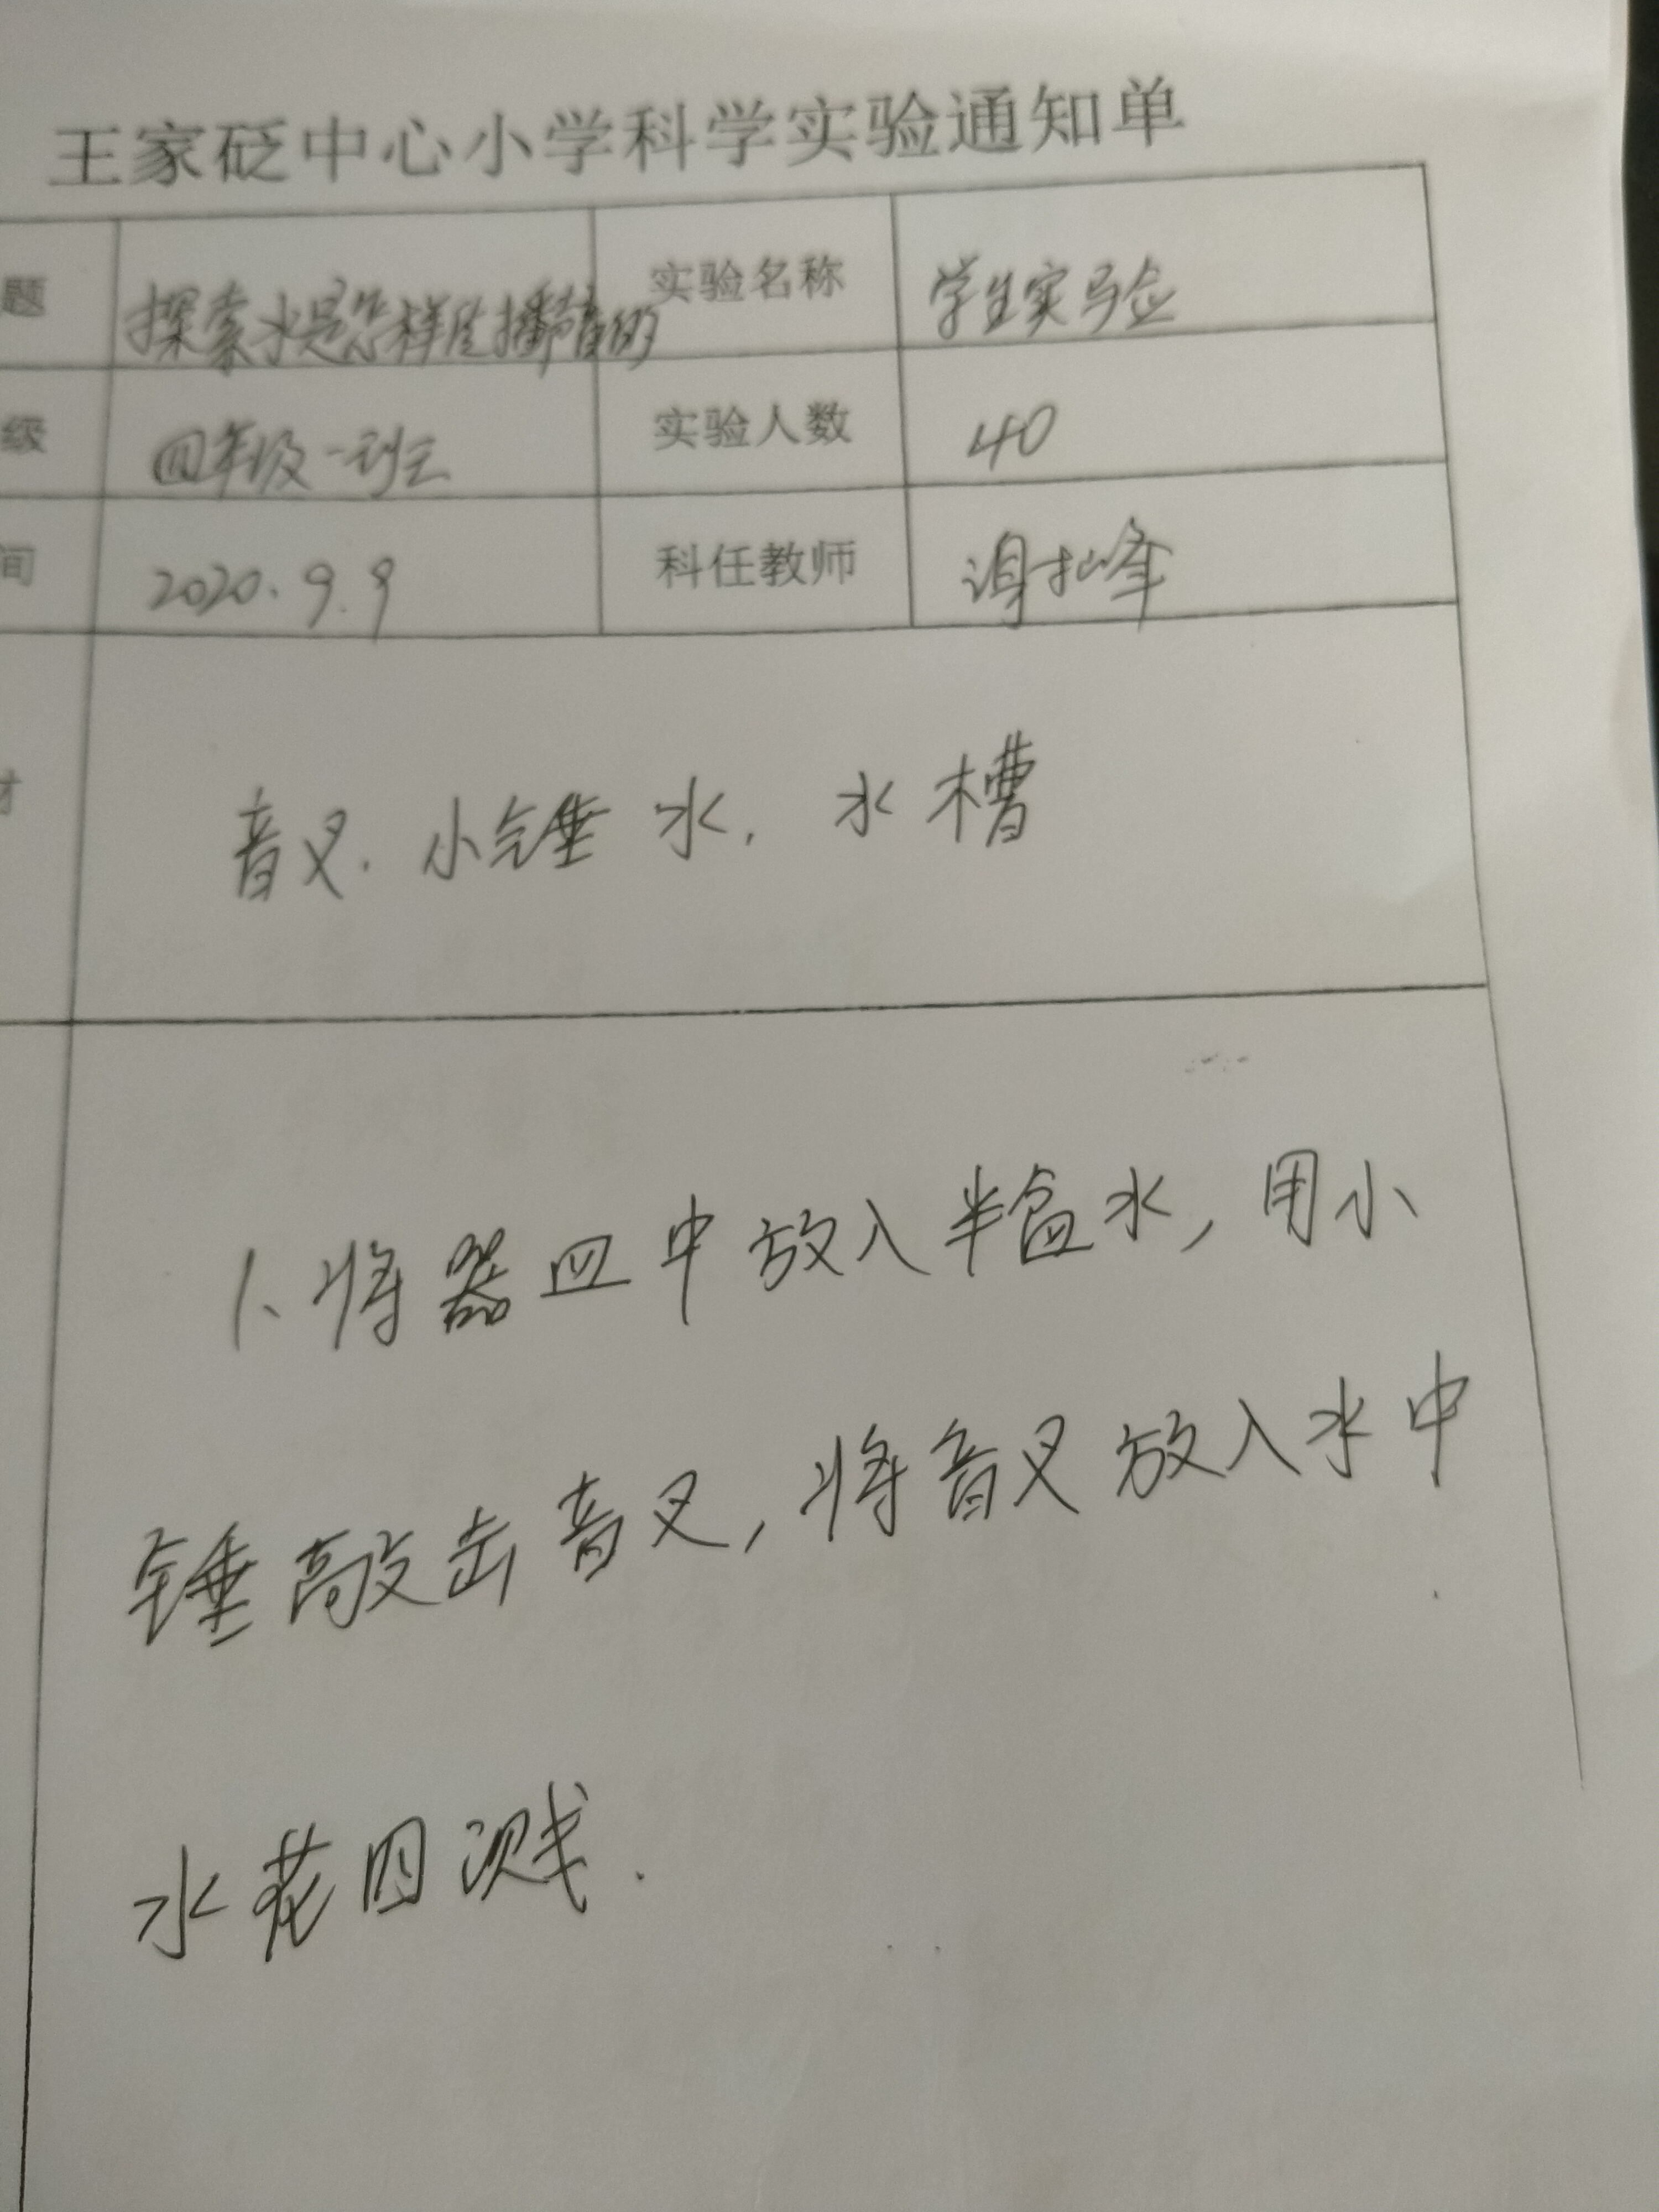 王家砭中心小学科学实验通知单
题 探索水是怎样传播声音的 实验名称 学生实验
级 四年级一班 实验人数 40
间 2020.9.9 科任教师 峰
材 音叉. 小锤 水, 水槽
1、将器皿中放入半盒水,用小
锤敲击音叉,将音叉放入水中
水花四溅.